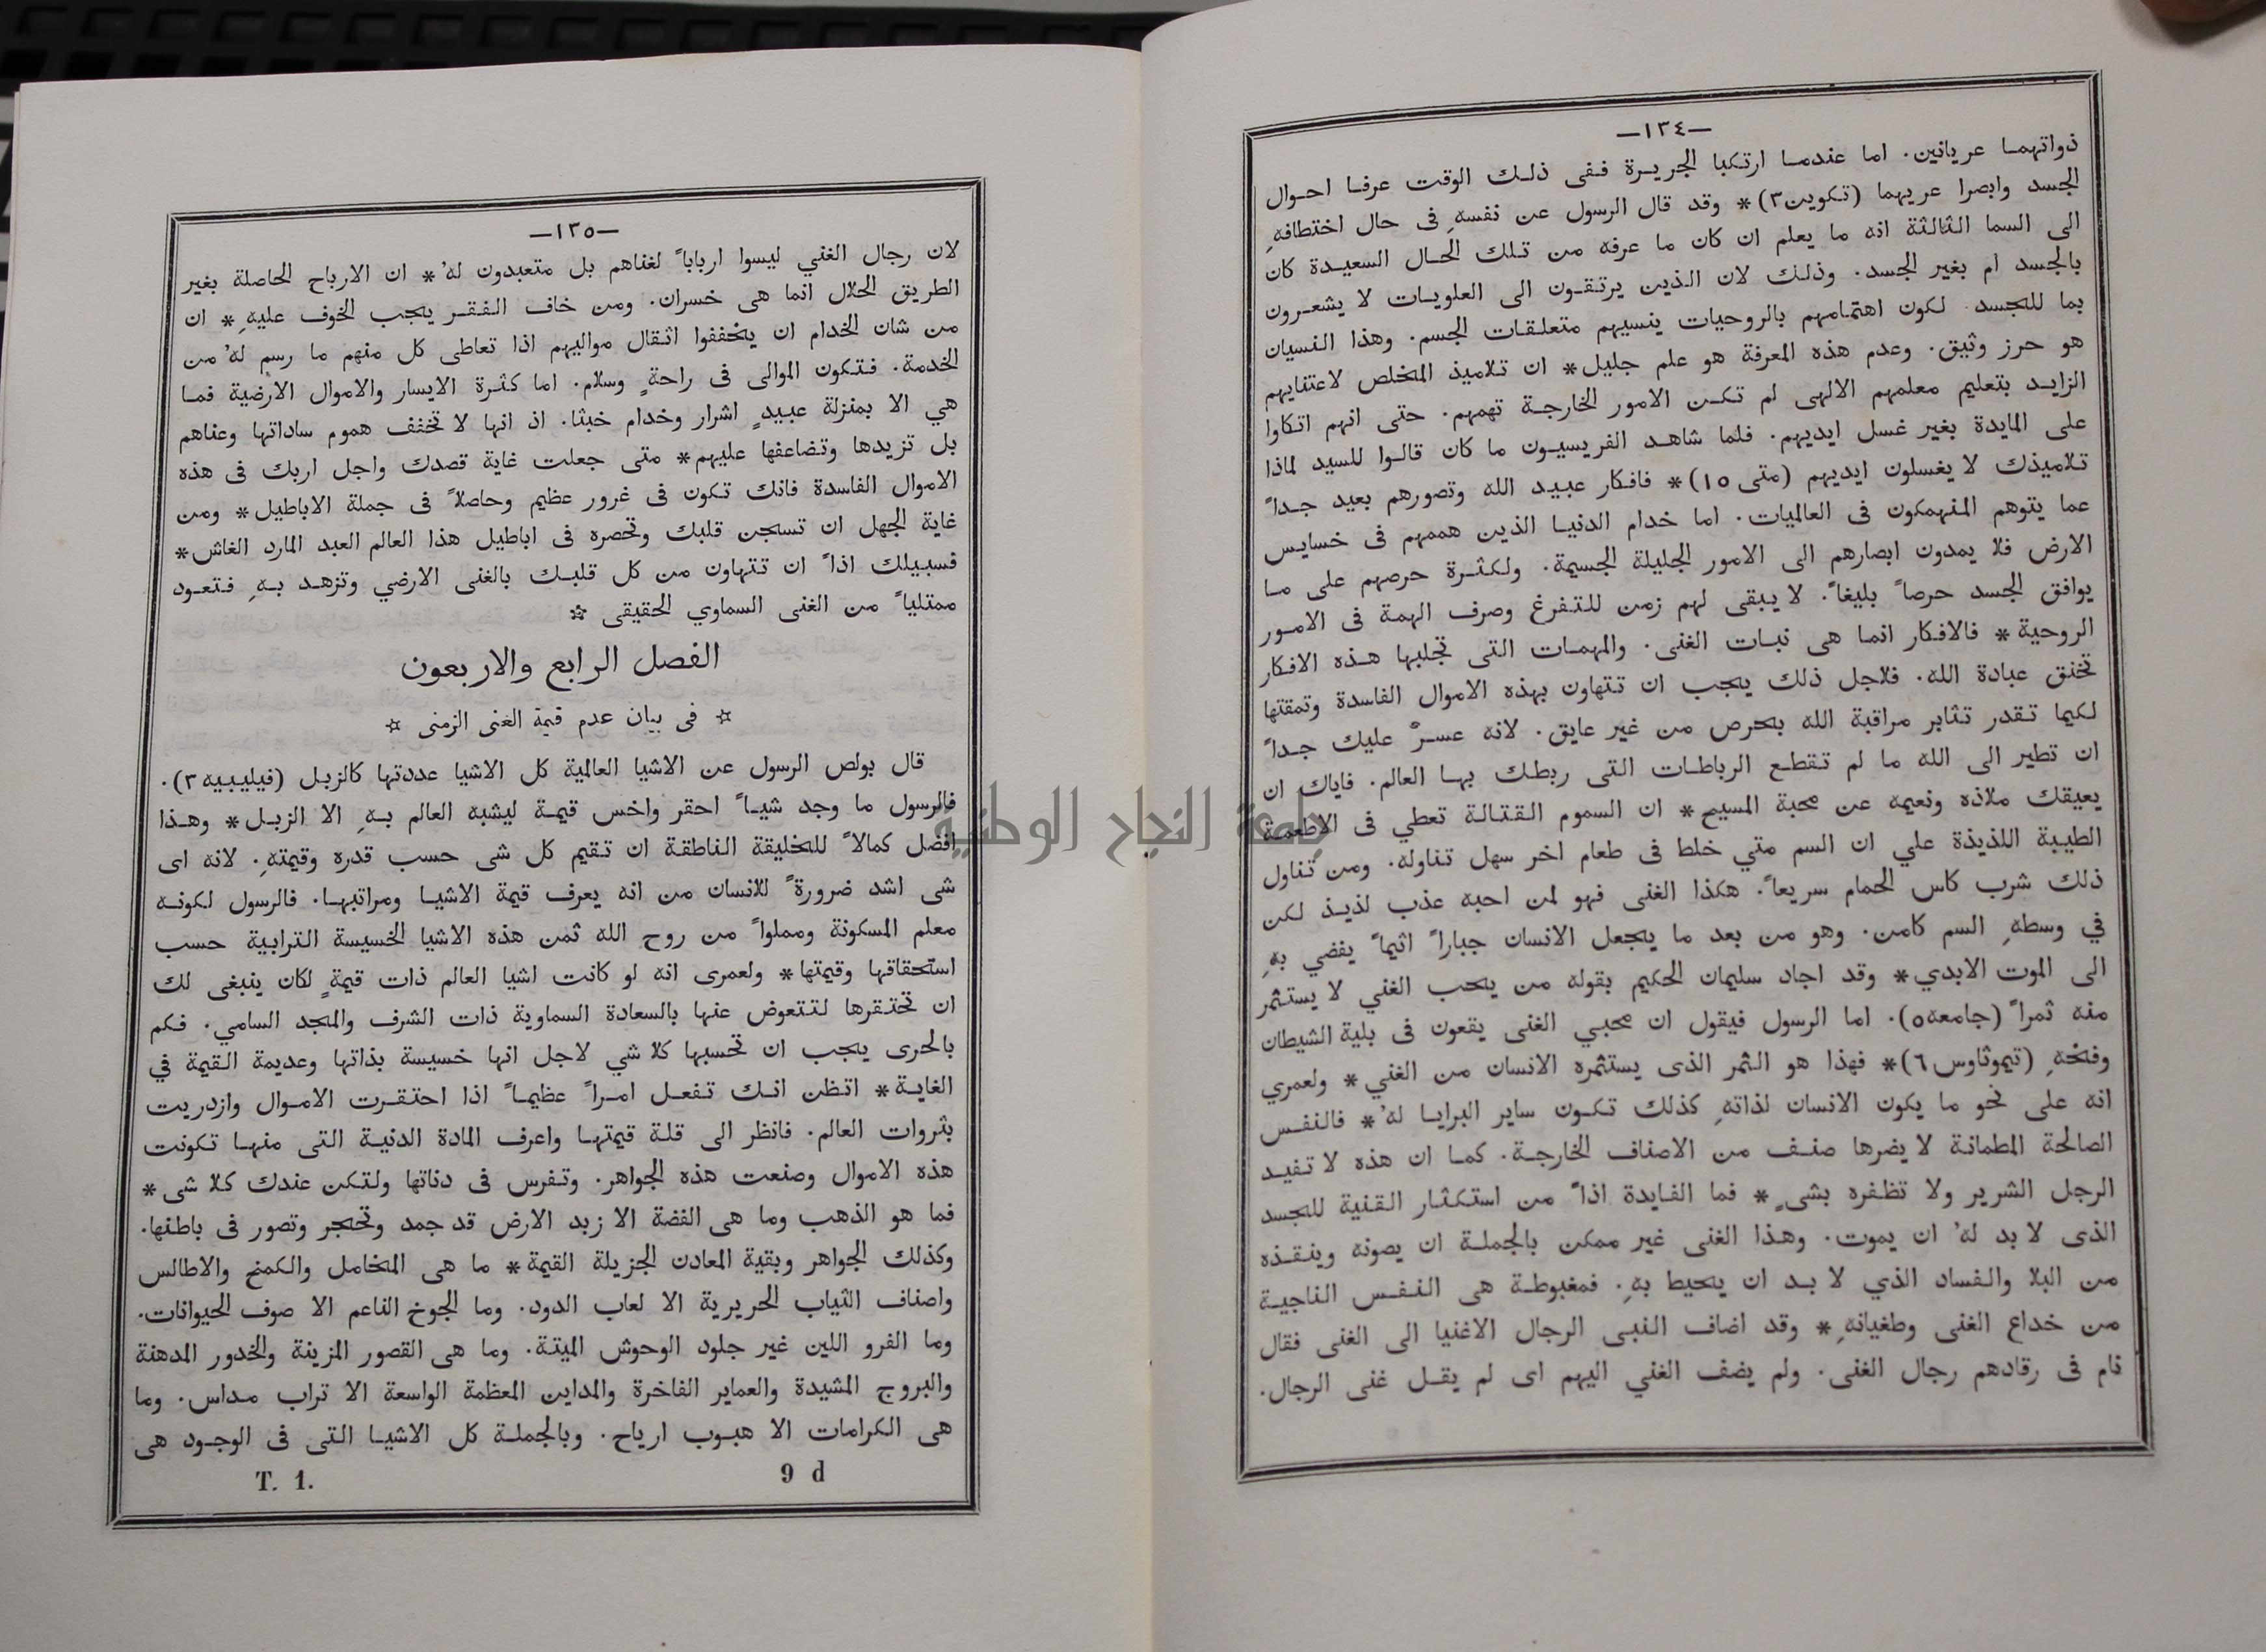 —١٣٤—
ذواتهما عريانين. اما عندما ارتكبا الجريرة ففى ذلك الوقت عرفا احوال
الجسد وابصرا عريهما (تكوين٣)* وقد قال الرسول عن نفسهِ فى حال اختطافهِ
الى السما الثالثة انه ما يعلم ان كان ما عرفه من تلك الحال السعيدة كان
بالجسد ام بغير الجسد. وذلك لان الذين يرتقون الى العلويات لا يشعرون
بما للجسد لكون اهتمامهم بالروحيات ينسيهم متعلقات الجسم. وهذا النسيان
هو حرز وثيق. وعدم هذه المعرفة هو علم جليل* ان تلاميذ المخلص لاعتنايهم
الزايد بتعليم معلمهم الالهى لم تكن الامور الخارجة تهمهم. حتى انهم اتكاوا
على المايدة بغير غسل ايديهم. فلما شاهد الفريسيون ما كان قالوا للسيد لماذا
تلاميذك لا يغسلون ايديهم (متى ١٥)* فافكار عبيد الله وتصورهم بعيد جداً
عما يتوهم المنهمكون فى العالميات. اما خدام الدنيا الذين هممهم فى خسايس
الارض فلا يمدون ابصارهم الى الامور الجليلة الجسيمة. ولكثرة حرصهم على ما
يوافق الجسد حرصاً بليغاً. لا يبقى لهم زمن للتفرغ وصرف الهمة فى الامور
الروحية* فالافكار انما هى نبات الغنى. والمهمات التى تجلبها هذه الافكار
تخنق عبادة الله. فلاجل ذلك يجب ان تتهاون بهذه الاموال الفاسدة وتمقتها
لكيما تقدر تثابر مراقبة الله بحرص من غير عايق. لانه عسرٌ عليك جداً
ان تطير الى الله ما لم تقطع الرباطات التى ربطك بها العالم. فاياك ان
يعيقك ملاذه ونعيمه عن محبة المسيح* ان السموم القتالة تعطي فى الاطعمة
الطيبة اللذيذة علي ان السم متي خلط فى طعام اخر سهل تناوله. ومن تناول
ذلك شرب كاس الحمام سريعاً. هكذا الغنى فهو لمن احبه عذب لذيذ لكن
في وسطهِ السم كامن. وهو من بعد ما يجعل الانسان جباراً اثيماً يفضي بهِ
الى الموت الابدي* وقد اجاد سليمان الحكيم بقوله من يحب الغني لا يستثمر
منه ثمراً (جامعه٥). اما الرسول فيقول ان محبي الغنى يقعون فى بلية الشيطان
وفخهِ (تيموثاوس٦)* فهذا هو الثمر الذى يستثمره الانسان من الغني* ولعمري
انه على نحو ما يكون الانسان لذاتهِ كذلك تكون ساير البرايا لهُ* فالنفس
الصالحة المطمانة لا يضرها صنف من الاصناف الخارجة. كما ان هذه لا تفيد
الرجل الشرير ولا تظفره بشىٍ* فما الفايدة اذاً من استكثار القنية للجسد
الذى لا بد لهُ ان يموت. وهذا الغنى غير ممكن بالجملة ان يصونه وينقذه
من البلا والفساد الذي لا بد ان يحيط بهِ. فمغبوطة هى النفس الناجية
من خداع الغنى وطغيانهِ* وقد اضاف النبى الرجال الاغنيا الى الغنى فقال
نام فى رقادهم رجال الغنى. ولم يضف الغني اليهم اى لم يقل غنى الرجال.
—١٣٥—
لان رجال الغني ليسوا ارباباً لغناهم بل متعبدون لهُ* ان الارباح الحاصلة بغير
الطريق الحلال انما هى خسران. ومن خاف الفقر يجب الخوف عليهِ* ان
من شان الخدام ان يخففوا اثقال مواليهم اذا تعاطى كل منهم ما رسم لهُ من
الخدمة. فتكون الموالى فى راحةٍ وسلام. اما كثرة الايسار والاموال الارضية فما
هي الا بمنزلة عبيدٍ اشرار وخدام خبثا. اذ انها لا تخفف هموم ساداتها وعناهم
بل تزيدها وتضاعفها عليهم* متى جعلت غاية قصدك واجل اربك فى هذه
الاموال الفاسدة فانك تكون فى غرور عظيم وحاصلاً فى جملة الاباطيل* ومن
غاية الجهل ان تسجن قلبك وتحصره فى اباطيل هذا العالم العبد المارد الغاش*
فسبيلك اذاً ان تتهاون من كل قلبك بالغنى الارضي وتزهد بهِ فتعود
ممتلياً من الغنى السماوي الحقيقى ☆
الفصل الرابع والاربعون
☆ فى بيان عدم قيمة الغنى الزمنى ☆
قال بولص الرسول عن الاشيا العالمية كل الاشيا عددتها كالزبل (فيليبيه٣).
فالرسول ما وجد شياً احقر واخس قيمة ليشبه العالم بهِ الا الزبل* وهذا
افضل كمالاً للخليقة الناطقة ان تقيم كل شى حسب قدره وقيمتهِ. لانه اى
شى اشد ضرورةً للانسان من انه يعرف قيمة الاشيا ومراتبها. فالرسول لكونه
معلم المسكونة ومملواً من روح الله ثمن هذه الاشيا الخسيسة الترابية حسب
استحقاقها وقيمتها* ولعمرى انه لو كانت اشيا العالم ذات قيمةٍ لكان ينبغى لك
ان تحتقرها لتتعوض عنها بالسعادة السماوية ذات الشرف والمجد السامي. فكم
بالحرى يجب ان تحسبها كلا شي لاجل انها خسيسة بذاتها وعديمة القيمة في
الغاية* اتظن انك تفعل امراً عظيماً اذا احتقرت الاموال وازدريت
بثروات العالم. فانظر الى قلة قيمتها واعرف المادة الدنية التى منها تكونت
هذه الاموال وصنعت هذه الجواهر. وتفرس فى دناتها ولتكن عندك كلا شى*
فما هو الذهب وما هى الفضة الا زبد الارض قد جمد وتحجر وتصور فى باطنها.
وكذلك الجواهر وبقية المعادن الجزيلة القيمة* ما هى المخامل والكمخ والاطالس
واصناف الثياب الحريرية الا لعاب الدود. وما الجوخ الناعم الا صوف الحيوانات.
وما الفرو اللين غير جلود الوحوش الميتة. وما هى القصور المزينة والخدور المدهنة
والبروج المشيدة والعماير الفاخرة والمداين المعظمة الواسعة الا تراب مداس. وما
هى الكرامات الا هبوب ارياح. وبالجملة كل الاشيا التى فى الوجود هى
T. 1. 9 d
جامعة النجاح الوطنية